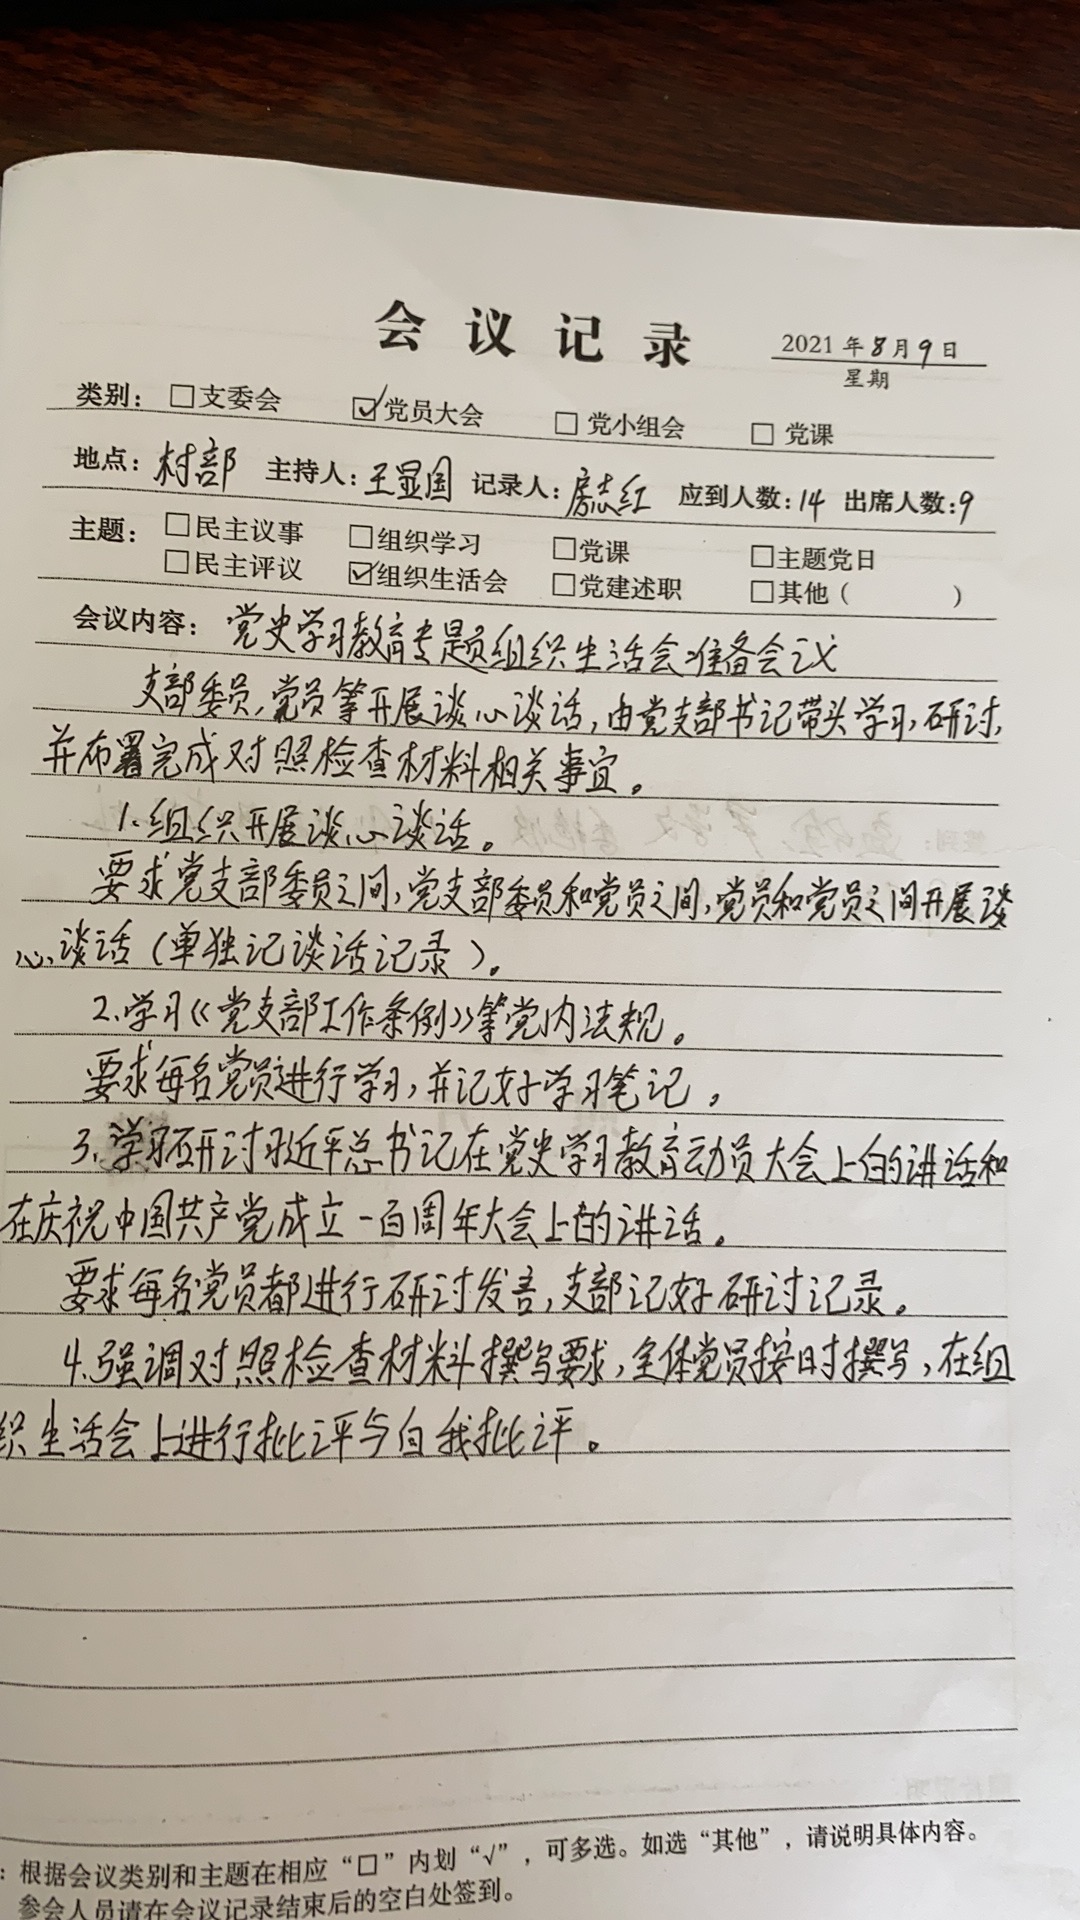 会议记录
2021年8月9日
星期
类别：□支委会 ☑党员大会 □党小组会 □党课
地点：村部 主持人：王显国 记录人：房志红 应到人数：14 出席人数：9
主题：□民主议事 □组织学习 □党课 □主题党日
□民主评议 ☑组织生活会 □党建述职 □其他（ ）
会议内容：党史学习教育专题组织生活会准备会议
支部委员，党员等开展谈心谈话，由党支部书记带头学习，研讨，
并布署完成对照检查材料相关事宜。
1.组织开展谈心谈话。
要求党支部委员之间，党支部委员和党员之间，党员和党员之间开展谈
心谈话（单独记谈话记录）。
2.学习《党支部工作条例》等党内法规。
要求每名党员进行学习，并记好学习笔记。
3.学习研讨习近平总书记在党史学习教育动员大会上的讲话和
在庆祝中国共产党成立一百周年大会上的讲话。
要求每名党员都进行研讨发言，支部记好研讨记录。
4.强调对照检查材料撰写要求，全体党员按时撰写，在组
织生活会上进行批评与自我批评。
：根据会议类别和主题在相应“□”内划“√”，可多选。如选“其他”，请说明具体内容。
参会人员请在会议记录结束后的空白处签到。